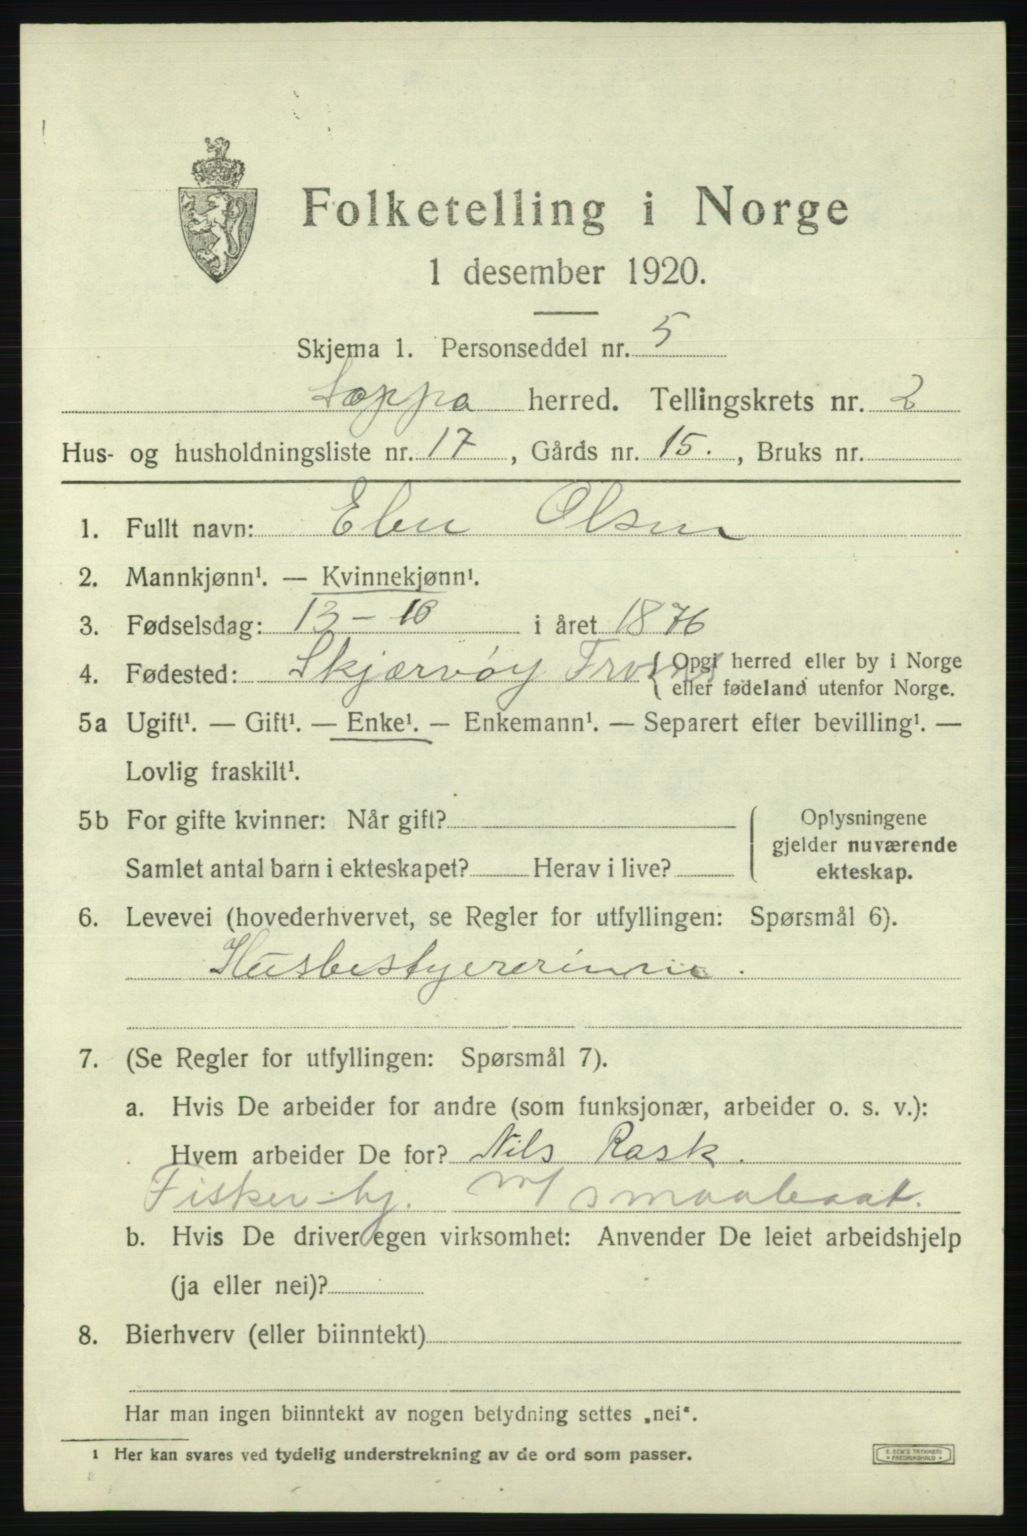 Folketelling i Norge
1 desember 1920.
Skjema 1. Personseddel nr. 5
Loppa herred. Tellingskrets nr. 2
Hus- og husholdningsliste nr. 17, Gårds nr. 15., Bruks nr.
1. Fullt navn: Olsen
2. Mannkjønn¹. — Kvinnekjønn¹.
3. Fødselsdag: 13-10 i året 1876
4. Fødested: Skjærvøy Troms { Opgi herred eller by i Norge
eller fødeland utenfor Norge.
5a Ugift¹. — Gift¹. — Enke¹. — Enkemann¹. — Separert efter bevilling¹. —
Lovlig fraskilt¹.
5b For gifte kvinner: Når gift?
Samlet antal barn i ekteskapet? Herav i live?
Oplysningene
gjelder nuværende
ekteskap.
6. Levevei (hovederhvervet, se Regler for utfyllingen: Spørsmål 6).
Husbestyrerinne.
7. (Se Regler for utfyllingen: Spørsmål 7).
a. Hvis De arbeider for andre (som funksjonær, arbeider o. s. v.):
Hvem arbeider De for? Nils Rask.
Fisker-hj. m/ smaabaat.
b. Hvis De driver egen virksomhet: Anvender De leiet arbeidshjelp
(ja eller nei)?
8. Bierhverv (eller biinntekt)
Har man ingen biinntekt av nogen betydning settes „nei“.
¹ Her kan svares ved tydelig understrekning av de ord som passer.